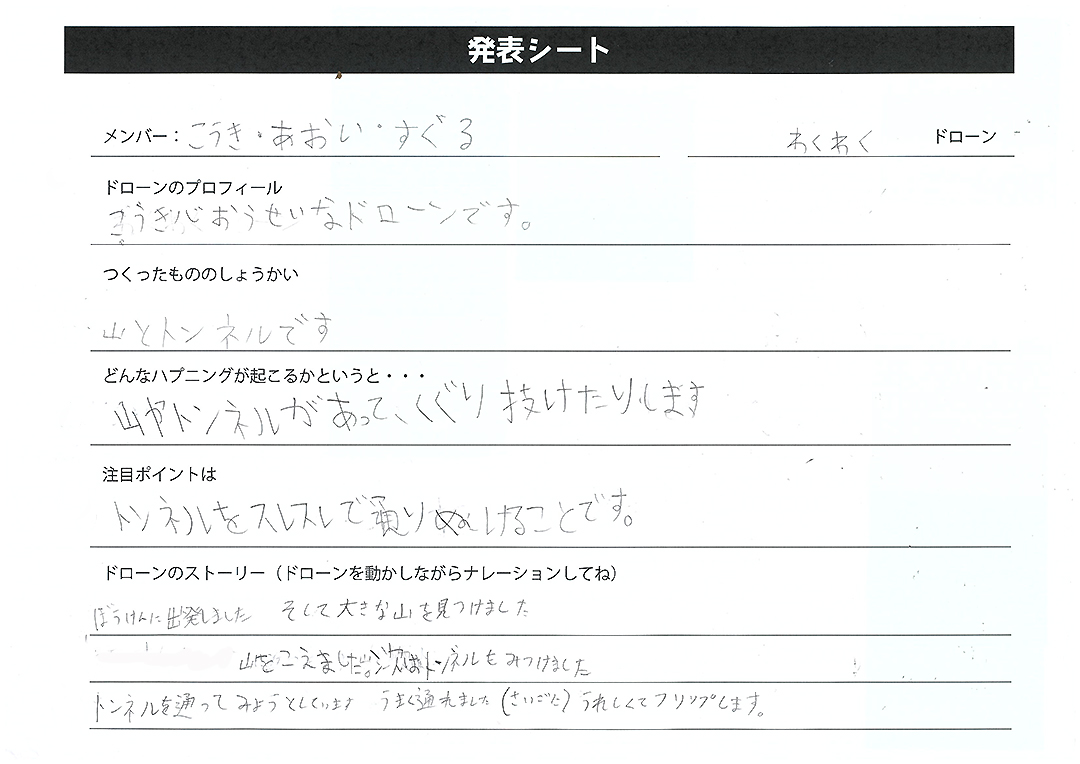 発表シート
メンバー：こうき・あおい・すぐる わくわく ドローン
ドローンのプロフィール
こうき心おうせいなドローンです。
つくったもののしょうかい
山とトンネルです
どんなハプニングが起こるかというと・・・
山やトンネルがあって、くぐり技けたりします
注目ポイントは
トンネルをスレスレで通りぬけることです。
ドローンのストーリー（ドローンを動かしながらナレーションしてね）
ぼうけんに出発しました そして大きな山を見つけました
山をこえました。次はトンネルをみつけました
トンネルを通ってみようとしています うまく通れました (さいごに) うれしくてフリップします。